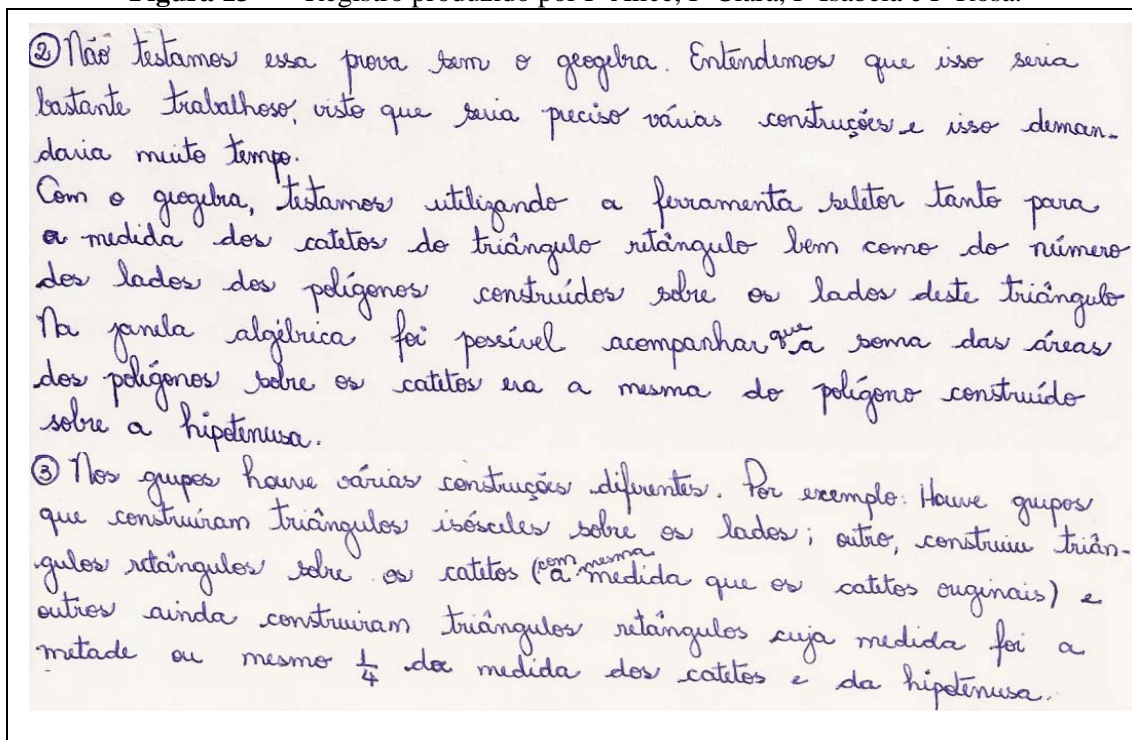 ② Não testamos essa prova sem o geogebra. Entendemos que isso seria
bastante trabalhoso, visto que seria preciso várias construções e isso deman-
daria muito tempo.
Com o geogebra, testamos utilizando a ferramenta seletor tanto para
a medida dos catetos do triângulo retângulo bem como do número
dos lados dos polígonos construídos sobre os lados deste triângulo
Na janela algébrica foi possível acompanhar que a soma das áreas
dos polígonos sobre os catetos era a mesma do polígono construído
sobre a hipotenusa.
③ Nos grupos houve várias construções diferentes. Por exemplo: Houve grupos
que construíram triângulos isósceles sobre os lados; outro, construiu triân-
gulos retângulos sobre os catetos (com a mesma medida que os catetos originais) e
outros ainda construiram triângulos retângulos cuja medida foi a
metade ou mesmo 1/4 da medida dos catetos e da hipotenusa.